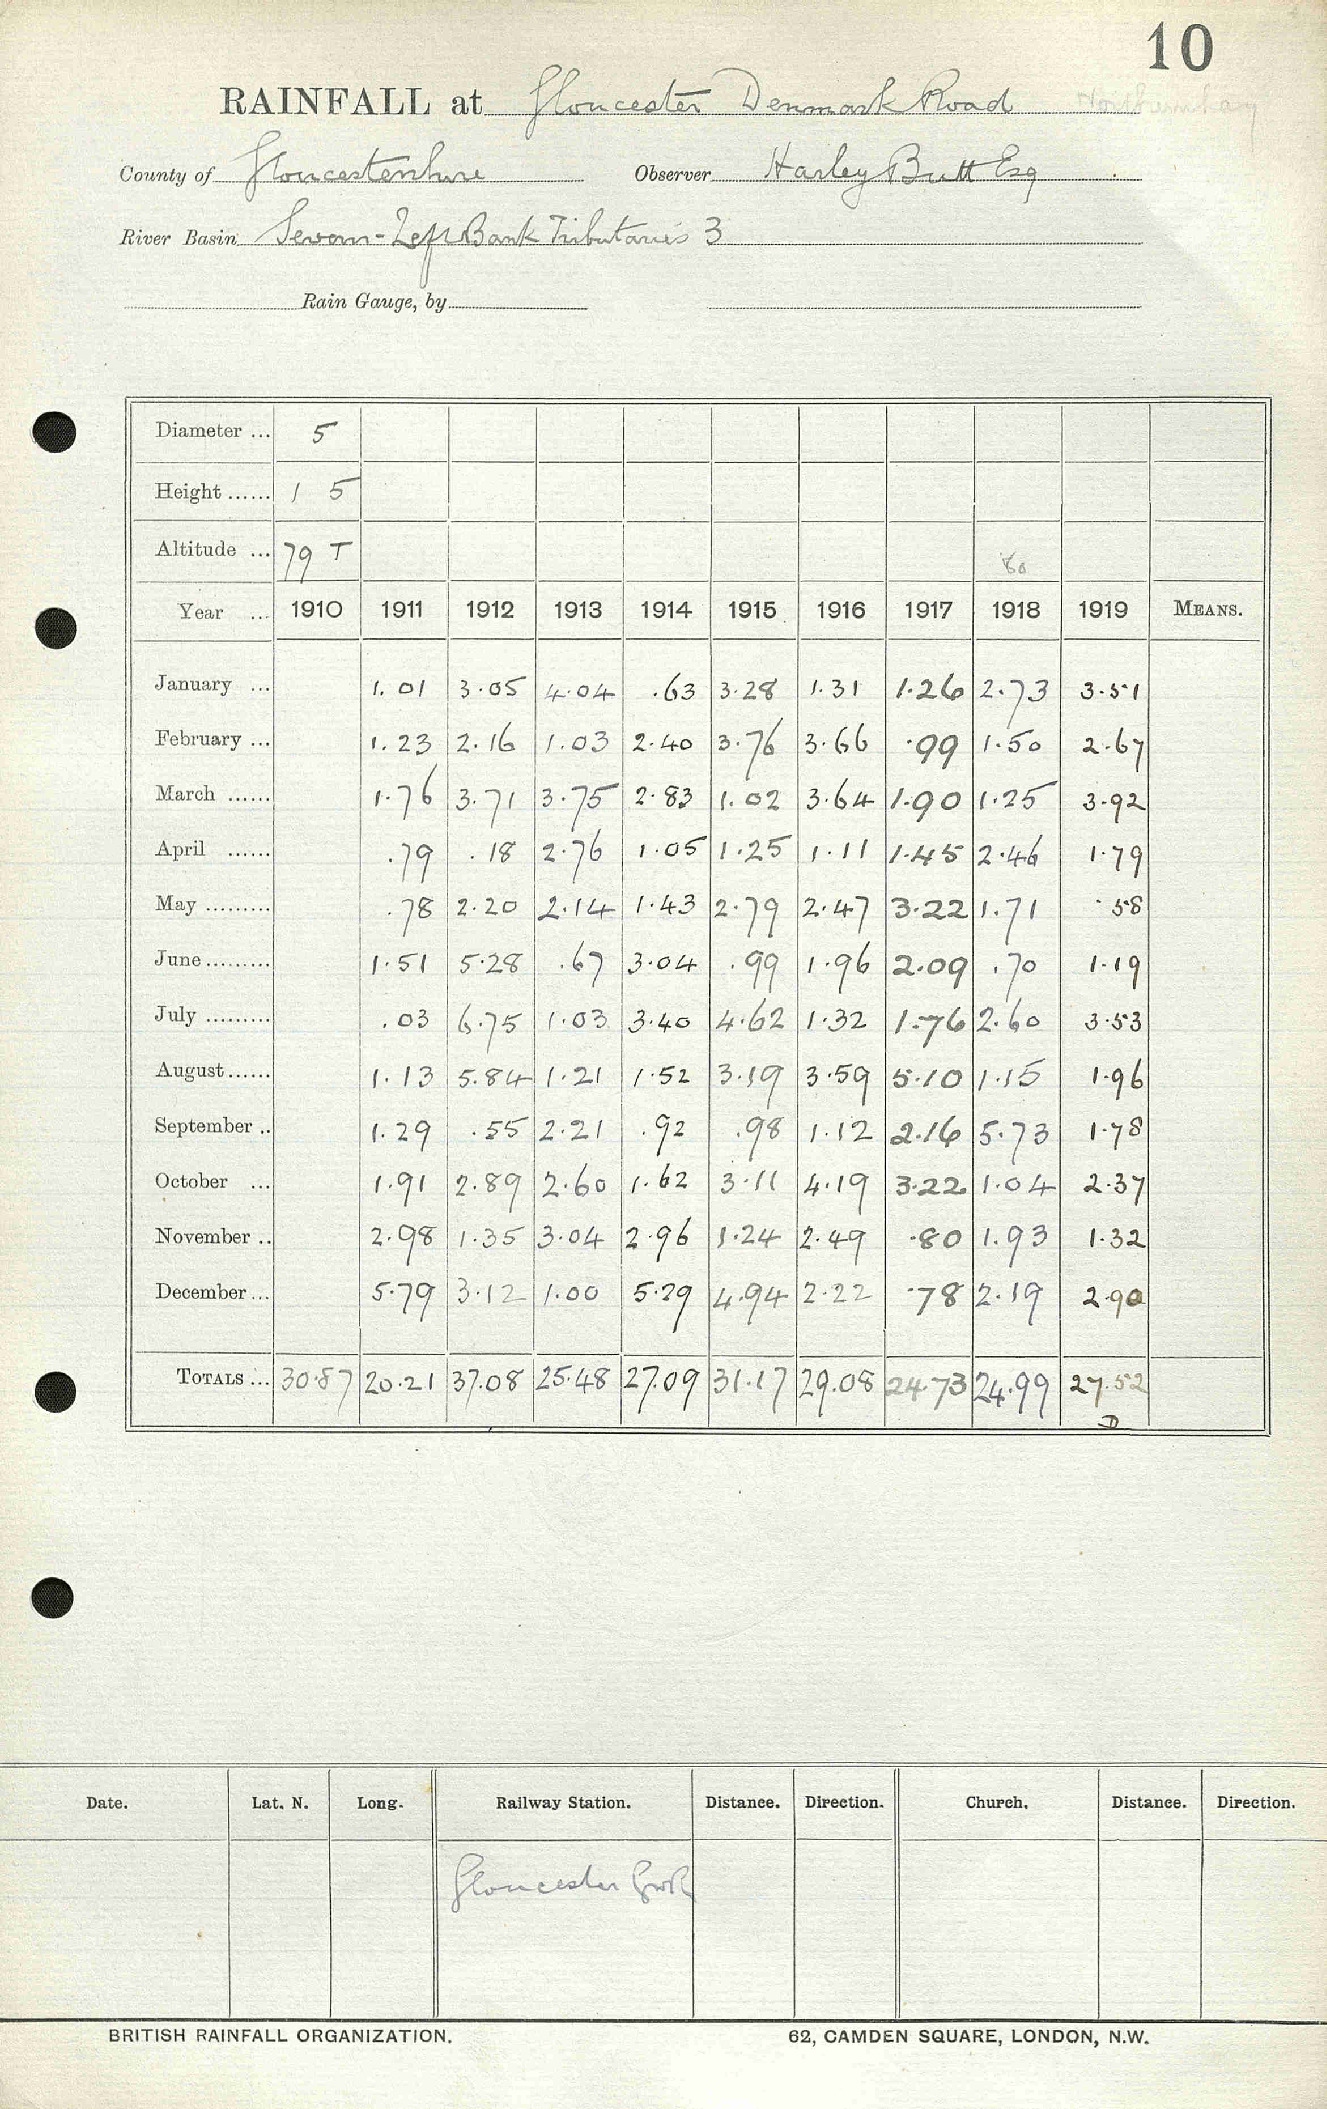 10
RAINFALL at Gloucester Denmark Road
County of Gloucestershire Observer Harley Butt Esq
River Basin Severn - Left Bank Tributaries 3
Rain Gauge, by
Diameter ... 5
Height ...... 1 5
Altitude ... 79 T 80
Year ... 1910 1911 1912 1913 1914 1915 1916 1917 1918 1919 MEANS.
January ... 1.01 3.05 4.04 .63 3.28 1.31 1.26 2.73 3.51
February ... 1.23 2.16 1.03 2.40 3.76 3.66 .99 1.50 2.67
March ...... 1.76 3.71 3.75 2.83 1.02 3.64 1.90 1.25 3.92
April ...... .79 .18 2.76 1.05 1.25 1.11 1.45 2.46 1.79
May ......... .78 2.20 2.14 1.43 2.79 2.47 3.22 1.71 .58
June ......... 1.51 5.28 .67 3.04 .99 1.96 2.09 .70 1.19
July ......... .03 6.75 1.03 3.40 4.62 1.32 1.76 2.60 3.53
August ...... 1.13 5.84 1.21 1.52 3.19 3.59 5.10 1.15 1.96
September .. 1.29 .55 2.21 .92 .98 1.12 2.16 5.73 1.78
October ... 1.91 2.89 2.60 1.62 3.11 4.19 3.22 1.04 2.37
November .. 2.98 1.35 3.04 2.96 1.24 2.49 .80 1.93 1.32
December ... 5.79 3.12 1.00 5.29 4.94 2.22 .78 2.19 2.90
TOTALS ... 30.87 20.21 37.08 25.48 27.09 31.17 29.08 24.73 24.99 27.52
D
Date. Lat. N. Long. Railway Station. Distance. Direction. Church. Distance. Direction.
Gloucester
BRITISH RAINFALL ORGANIZATION. 62, CAMDEN SQUARE, LONDON, N.W.